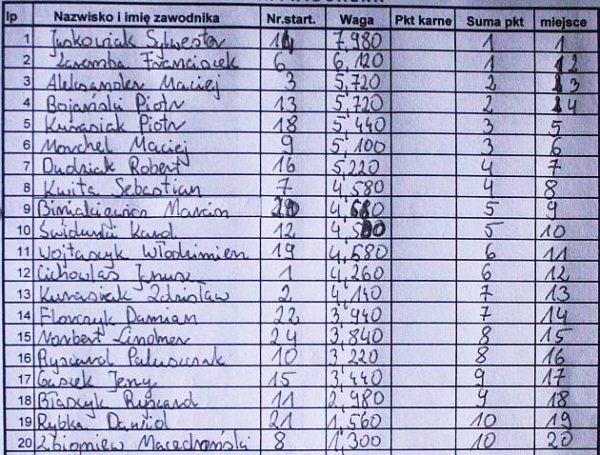 lp Nazwisko i imię zawodnika Nr.start. Waga Pkt karne Suma pkt miejsce
1 Juskowiak Sylwester 14 7,980 1 1
2 Zaremba Franciszek 6 6,120 1 2
3 Aleksander Maciej 3 5,720 2 3
4 Bojański Piotr 13 5,720 2 4
5 Kurasiak Piotr 18 5,440 3 5
6 Morchel Maciej 9 5,100 3 6
7 Dudziak Robert 16 5,220 4 7
8 Kwita Sebastian 7 4,580 4 8
9 Marcin 4,680 5 9
10 Świduński Karol 12 5 10
11 Wojtaszyk Włodzimierz 19 4,580 6 11
12 Cichowlas Janusz 1 4,260 6 12
13 Kurasiak Zdzisław 2 4,140 7 13
14 Florczyk Damian 22 3,940 7 14
15 Norbert Lindner 24 3,840 8 15
16 Ryszard Paluszczak 10 3,220 8 16
17 Gąsiek Jerzy 15 3,440 9 17
18 Błaszyk Ryszard 11 2,980 9 18
19 Rybka Dawid 21 1,560 10 19
20 Zbigniew 8 1,300 10 20